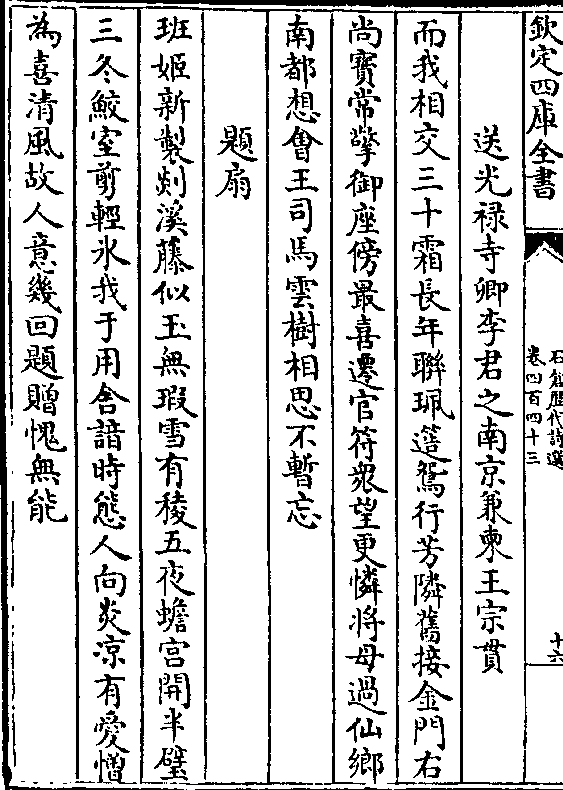 欽定四庫全書
石倉歴代詩選
卷四百四十三
十六
送光禄寺卿李君之南京兼柬王宗貫
而我相交三十霜長年聯珮簉鴛行芳隣舊接金門右
尚寳常擎御座傍最喜遷官符衆望更憐將母過仙鄉
南都想㑹王司馬雲樹相思不暫忘
題扇
班姬新製剡溪藤似玉無瑕雪有稜五夜蟾宫開半璧
三冬鮫室剪輕氷我于用舎諳時態人向炎凉有愛憎
為喜清風故人意幾回題贈愧無能